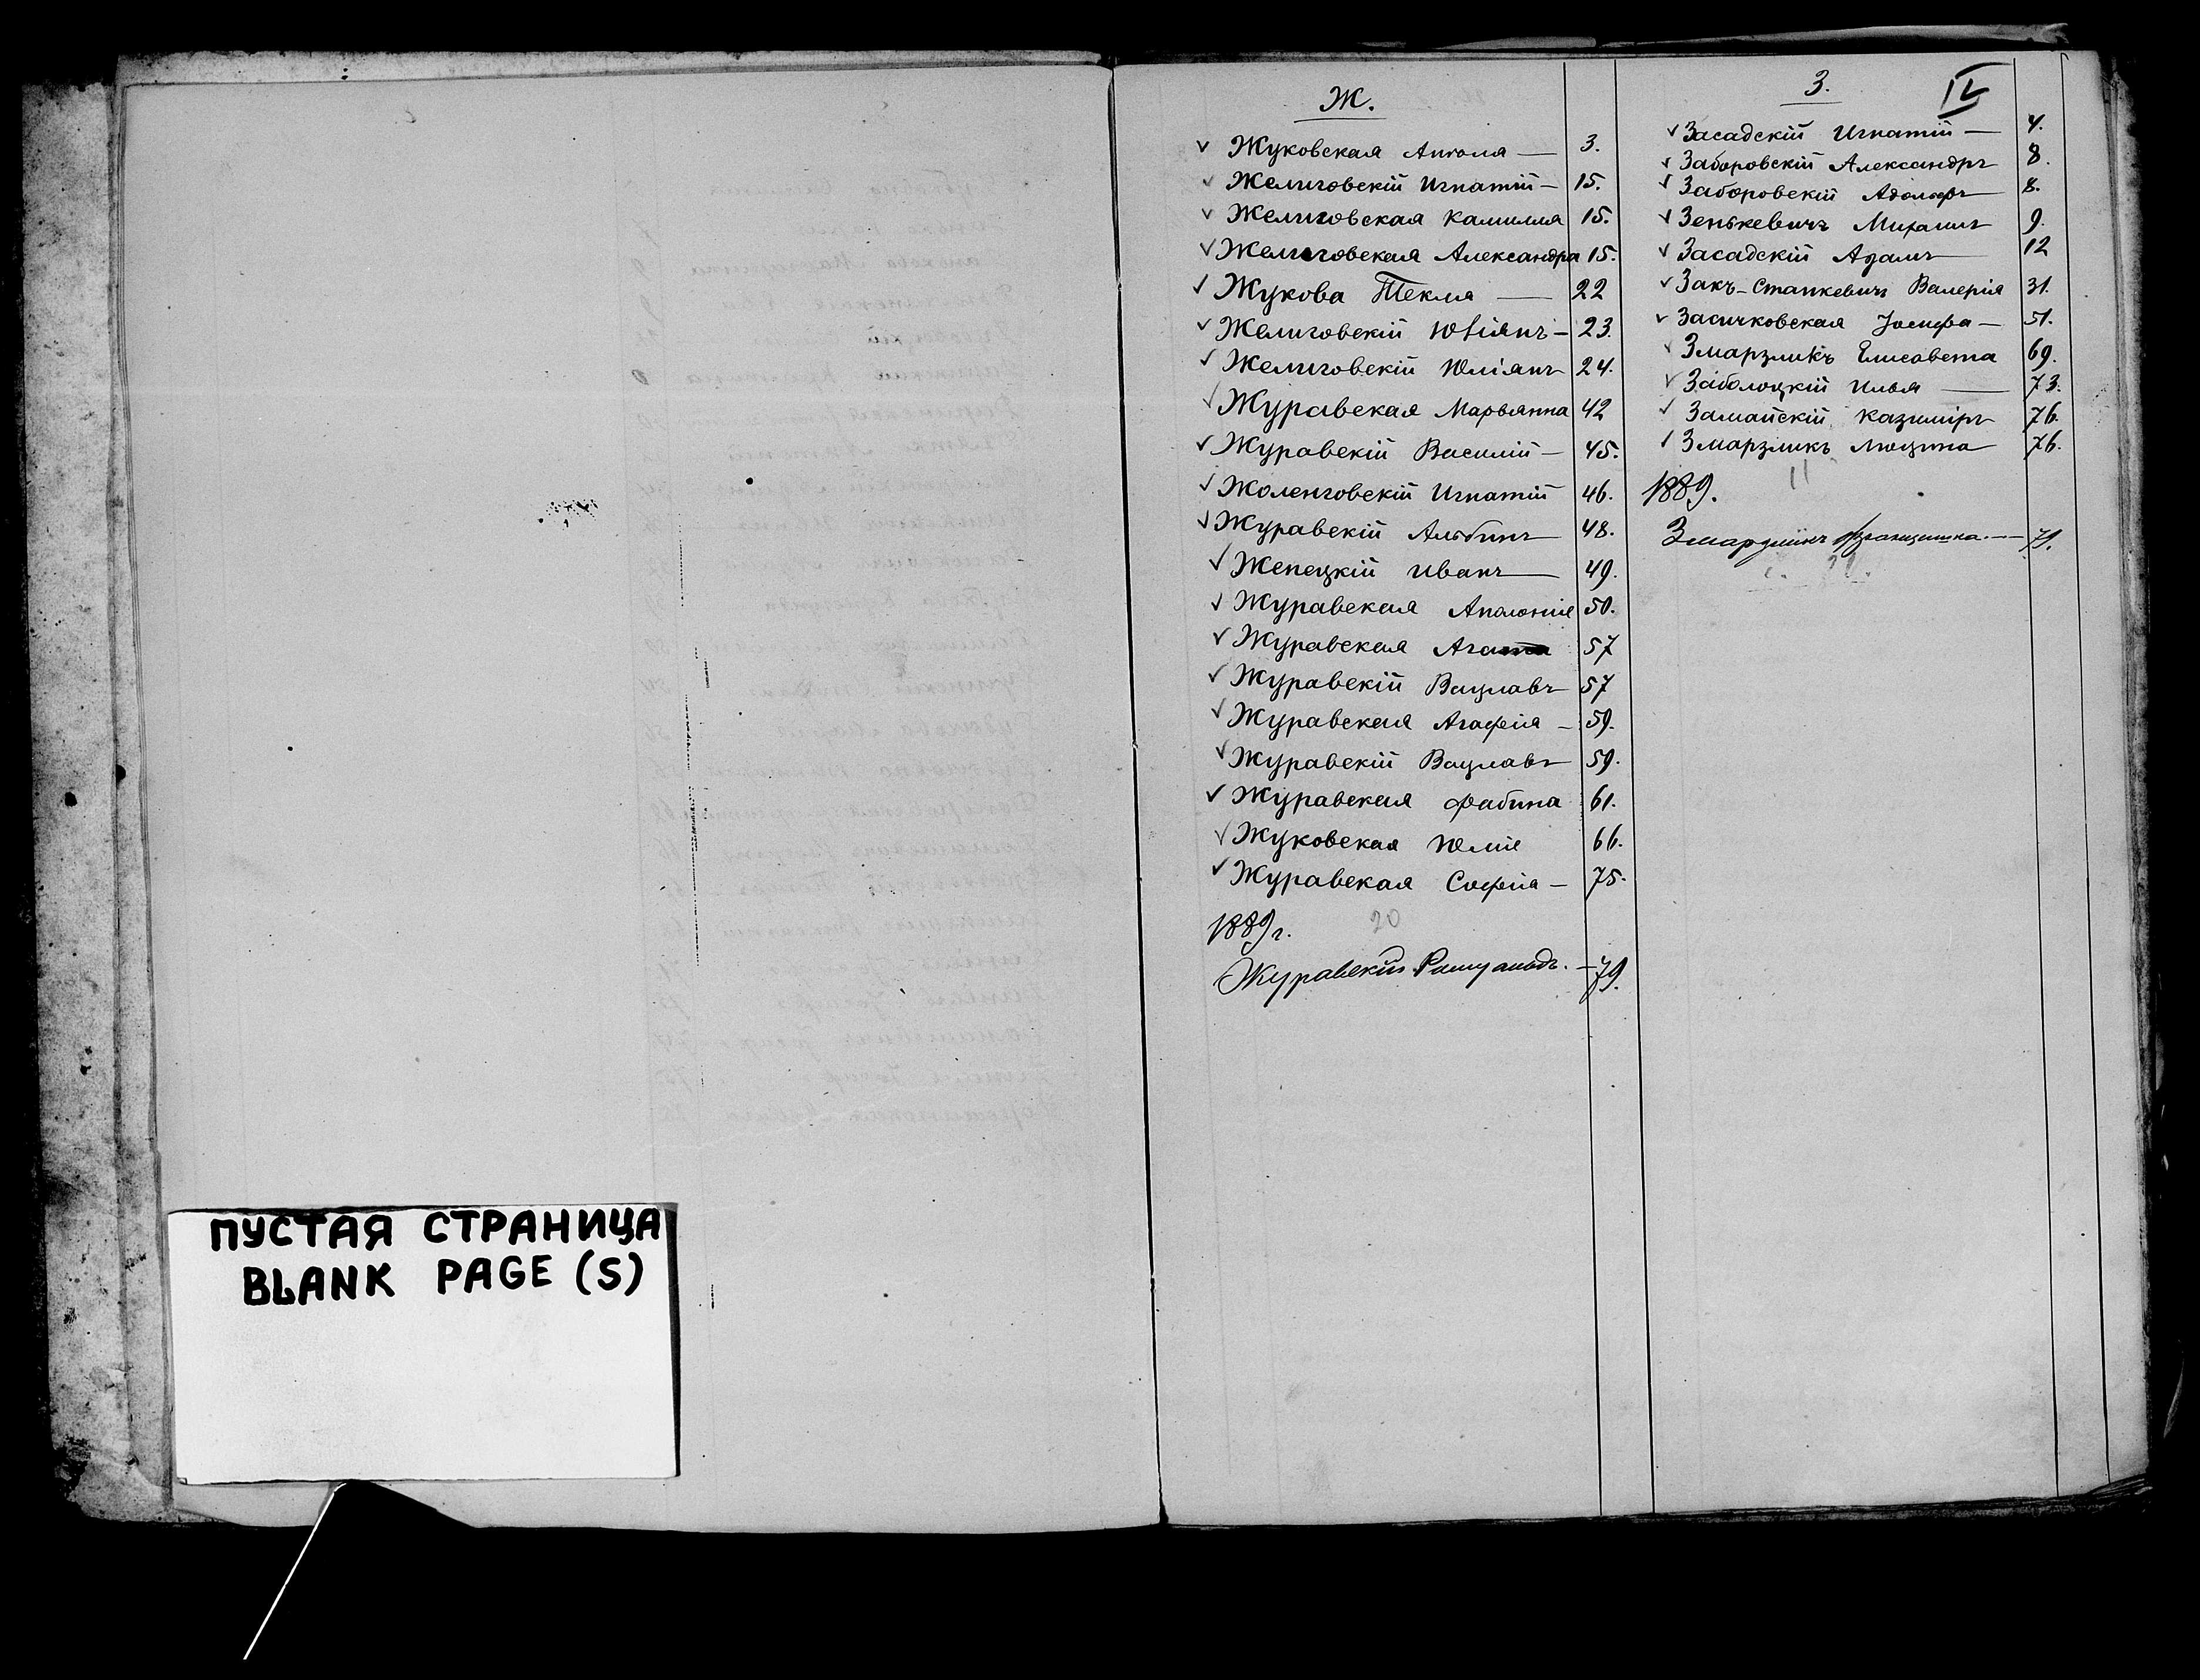 Ж.
Жуковская Ангеля — 3.
Желиговскій Игнатій — 15.
Желиговская Камиллия 15.
Желиговская Александра 15.
Жукова Текля — 22
Желиговскій Юліянъ — 23.
Желиговскій Юліянъ 24.
Журавская Марьянна 42
Журавскій Василій — 45.
Жоленговскій Игнатій 46.
Журавскій Альбинъ 48.
Жепецкій Иванъ — 49.
Журавская Аполонія 50.
Журавская Агата 57
Журавскій Вацлавъ 57
Журавская Агафія — 59.
Журавскій Вацлавъ 59.
Журавская Фабина 61.
Жуковская Юлія 66.
Журавская Софія — 75.
20
1889 г.
Журавскій Ромуальдъ. — 79.
З.
IV
Засадскій Игнатій — 4.
Заборовскій Александръ 8.
Заборовскій Адольфъ 8.
Зенькевичъ Михаилъ 9.
Засадскій Адамъ 12
Закъ-Станкевичъ Валерія 31.
Засичковская Іосифа — 51.
Змарзликъ Елисавета 69.
Заблоцкій Илья — 73.
Замайскій Казиміръ 76.
Змарзликъ Люцина 76.
11
1889.
Змарзликъ Францишка. — 79.
ПУСТАЯ СТРАНИЦА
BLANK PAGE (S)